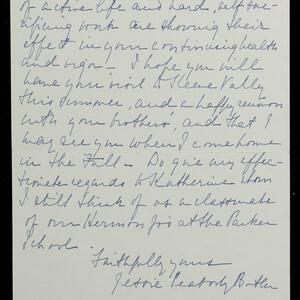 of active life and hard, self sac-
rificing work are showing their
effect in your continuing health
and vigor - I hope you will
have your visit to Keene Vally
this summer, and a happy reunion
with your brothers', and that I
may see you when I come home
in the Fall - Do give my affec-
tionate regards to Katherine whom
I still think of as a classmate
of our Hermon Jr's at the Parker
School.
Faithfully yours
Jessie Peabody Butler